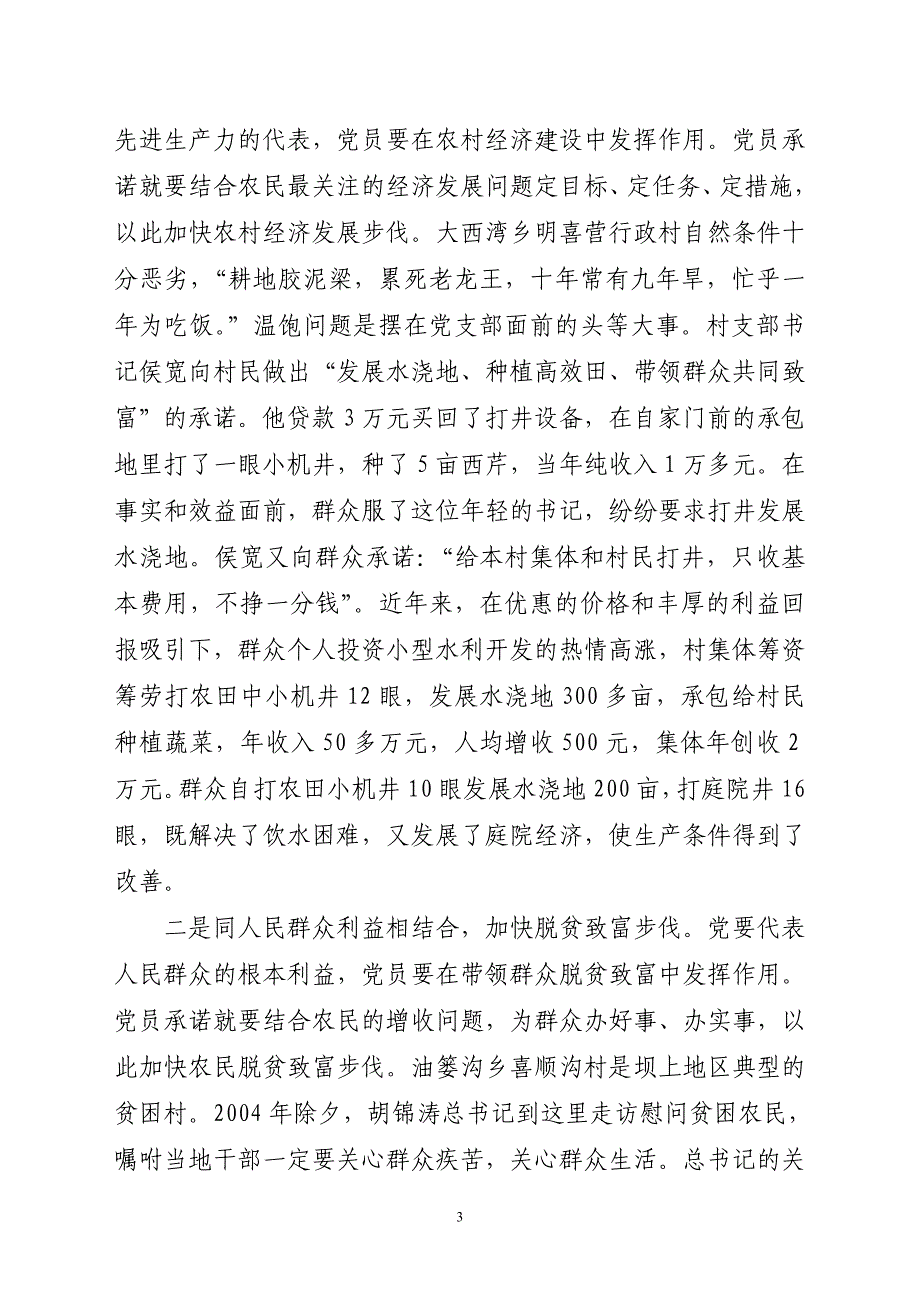 先进生产力的代表，党员要在农村经济建设中发挥作用。党员承
诺就要结合农民最关注的经济发展问题定目标、定任务、定措施，
以此加快农村经济发展步伐。大西湾乡明喜营行政村自然条件十
分恶劣，“耕地胶泥梁，累死老龙王，十年常有九年旱，忙乎一
年为吃饭。”温饱问题是摆在党支部面前的头等大事。村支部书
记侯宽向村民做出“发展水浇地、种植高效田、带领群众共同致
富”的承诺。他贷款 3 万元买回了打井设备，在自家门前的承包
地里打了一眼小机井，种了 5 亩西芹，当年纯收入 1 万多元。在
事实和效益面前，群众服了这位年轻的书记，纷纷要求打井发展
水浇地。侯宽又向群众承诺：“给本村集体和村民打井，只收基
本费用，不挣一分钱”。近年来，在优惠的价格和丰厚的利益回
报吸引下，群众个人投资小型水利开发的热情高涨，村集体筹资
筹劳打农田中小机井 12 眼，发展水浇地 300 多亩，承包给村民
种植蔬菜，年收入 50 多万元，人均增收 500 元，集体年创收 2
万元。群众自打农田小机井 10 眼发展水浇地 200 亩，打庭院井 16
眼，既解决了饮水困难，又发展了庭院经济，使生产条件得到了
改善。
二是同人民群众利益相结合，加快脱贫致富步伐。党要代表
人民群众的根本利益，党员要在带领群众脱贫致富中发挥作用。
党员承诺就要结合农民的增收问题，为群众办好事、办实事，以
此加快农民脱贫致富步伐。油篓沟乡喜顺沟村是坝上地区典型的
贫困村。2004 年除夕，胡锦涛总书记到这里走访慰问贫困农民，
嘱咐当地干部一定要关心群众疾苦，关心群众生活。总书记的关
3